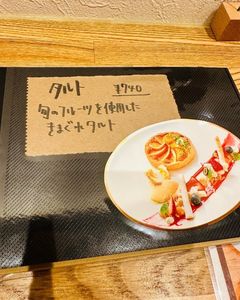 タルト ¥740
旬のフルーツを使用した
きまぐれタルト